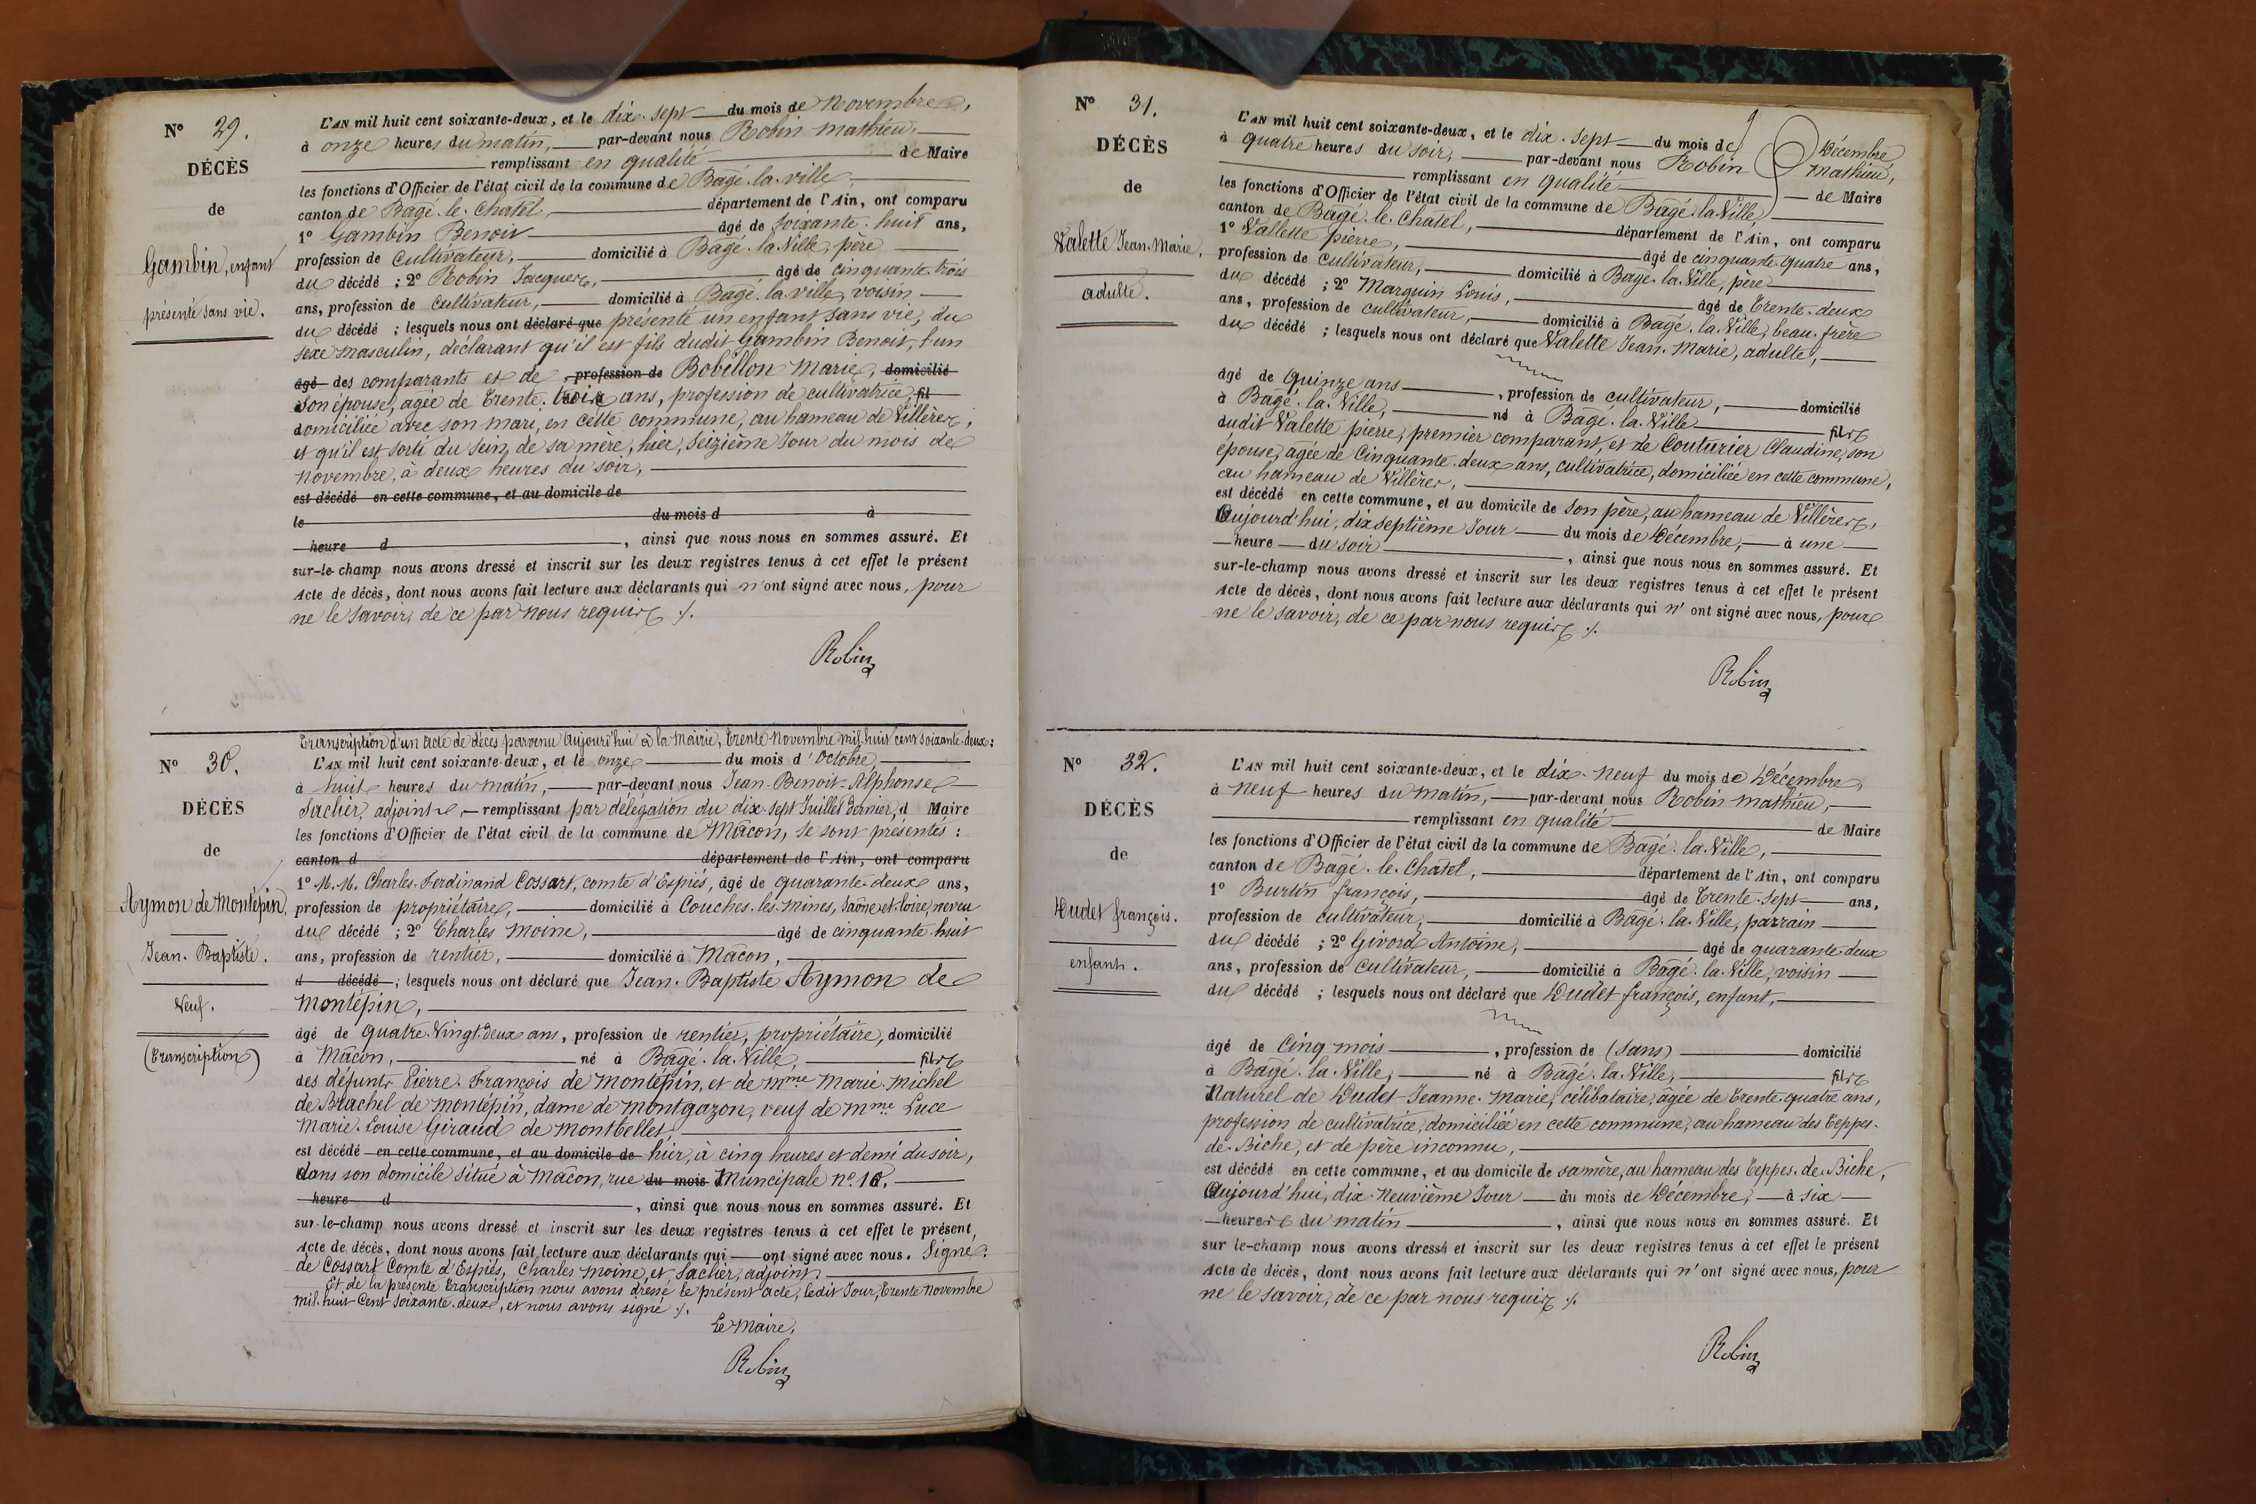 N° 29.
DÉCÈS
de
Gambin, enfant
présenté sans vie.
L'AN mil huit cent soixante-deux, et le dix-sept du mois de Novembre,
à onze heures du matin, par-devant nous Robin Mathieu,
remplissant en qualité de Maire
les fonctions d'Officier de l'état civil de la commune de Bâgé-la-Ville,
canton de Bâgé-le-Châtel, département de l'Ain, ont comparu
1° Gambin Benoit âgé de soixante-huit ans,
profession de cultivateur, domicilié à Bâgé-la-Ville, père
du décédé ; 2° Robin Jacques, âgé de cinquante-trois
ans, profession de cultivateur, domicilié à Bâgé-la-Ville, voisin
du décédé ; lesquels nous ont déclaré que présenté un enfant sans vie, du
sexe masculin, déclarant qu'il est fils dudit Gambin Benoit, l'un
âgé des comparants et de , profession de Bobillon Marie, domicilié
son épouse, agée de trente-trois ans, profession de cultivatrice, fil
domiciliée avec son mari, en cette commune, au hameau de Villères,
et qu'il est sorti du sein de sa mère, hier, seizième jour du mois de
novembre, à deux heures du soir,
est décédé en cette commune, et au domicile de
le du mois d à
heure d , ainsi que nous nous en sommes assuré. Et
sur-le-champ nous avons dressé et inscrit sur les deux registres tenus à cet effet le présent
Acte de décès, dont nous avons fait lecture aux déclarants qui n'ont signé avec nous, pour
ne le savoir, de ce par nous requis ./.
Robin
N° 30.
DÉCÈS
de
Aymon de Montépin,
Jean-Baptiste.
Veuf.
(Transcription)
Transcription d'un acte de décès parvenu aujourd'hui à la mairie, trente Novembre mil huit cent soixante-deux :
L'AN mil huit cent soixante-deux, et le onze du mois d'Octobre,
à huit heures du matin, par-devant nous Jean-Benoit-Alphonse
Lachier, adjoint, remplissant par délégation du dix-sept Juillet dernier, d Maire
les fonctions d'Officier de l'état civil de la commune de Mâcon, se sont présentés :
canton d département de l'Ain, ont comparu
1° M.M. Charles-Ferdinand Cossart, comte d'Espiés, âgé de quarante-deux ans,
profession de propriétaire, domicilié à Couches-les-Mines, Saône-et-Loire, neveu
du décédé ; 2° Charles Moine, âgé de cinquante-huit
ans, profession de rentier, domicilié à Mâcon,
d décédé ; lesquels nous ont déclaré que Jean-Baptiste Aymon de
Montépin,
âgé de quatre-vingt-deux ans, profession de rentier, propriétaire, domicilié
à Mâcon, né à Bâgé-la-Ville, fils
des défunts Pierre-François de Montépin, et de Mme Marie-Michel
de Brachel de Montépin, dame de Montgazon, veuf de Mme Luce
Marie-Louise Giraud de Montbellet,
est décédé en cette commune, et au domicile de hier, à cinq heures et demi du soir,
dans son domicile situé à Mâcon, rue du mois Municipale n° 18.
heure d , ainsi que nous nous en sommes assuré. Et
sur-le-champ nous avons dressé et inscrit sur les deux registres tenus à cet effet le présent,
Acte de décès, dont nous avons fait lecture aux déclarants qui ont signé avec nous. Signé :
de Cossart Comte d'Espiés, Charles Moine, et Lachier, adjoint.
Et de la présente transcription nous avons dressé le présent acte, ledit Jour, trente Novembre
mil-huit-cent soixante-deux, et nous avons signé ./.
Le Maire,
Robin
N° 31.
DÉCÈS
de
Valette Jean-Marie,
adulte.
L'AN mil huit cent soixante-deux, et le dix-sept du mois de Décembre
à quatre heures du soir, par-devant nous Robin Mathieu,
remplissant en qualité de Maire
les fonctions d'Officier de l'état civil de la commune de Bâgé-la-Ville,
canton de Bâgé-le-Châtel, département de l'Ain, ont comparu
1° Vallette pierre, âgé de cinquante-quatre ans,
profession de cultivateur, domicilié à Bâgé-la-Ville, père
du décédé ; 2° Marguin Louis, âgé de trente-deux
ans, profession de cultivateur, domicilié à Bâgé-la-Ville, beau-frère
du décédé ; lesquels nous ont déclaré que Valette Jean-Marie, adulte,
âgé de quinze ans, profession de cultivateur, domicilié
à Bâgé-la-Ville, né à Bâgé-la-Ville fils
dudit Valette pierre, premier comparant, et de Couturier Claudine, son
épouse, agée de cinquante-deux ans, cultivatrice, domiciliée en cette commune,
au hameau de Villères,
est décédé en cette commune, et au domicile de son père, au hameau de Villères,
Aujourd'hui, dix septième Jour du mois de Décembre, à une
heure du soir , ainsi que nous nous en sommes assuré. Et
sur-le-champ nous avons dressé et inscrit sur les deux registres tenus à cet effet le présent
Acte de décès, dont nous avons fait lecture aux déclarants qui n'ont signé avec nous, pour
ne le savoir, de ce par nous requis ./.
Robin
N° 32.
DÉCÈS
de
Dudet françois.
enfant.
L'AN mil huit cent soixante-deux, et le dix-neuf du mois de Décembre,
à neuf heures du matin, par-devant nous Robin Mathieu,
remplissant en qualité de Maire
les fonctions d'Officier de l'état civil de la commune de Bâgé-la-Ville,
canton de Bâgé-le-Châtel, département de l'Ain, ont comparu
1° Burtin françois, âgé de trente-sept ans,
profession de cultivateur, domicilié à Bâgé-la-Ville, parrain
du décédé ; 2° Givord Antoine, âgé de quarante-deux
ans, profession de cultivateur, domicilié à Bâgé-la-Ville, voisin
du décédé ; lesquels nous ont déclaré que Dudet françois, enfant,
âgé de cinq mois, profession de (sans) domicilié
à Bâgé-la-Ville, né à Bâgé-la-Ville, fils
Naturel de Dudet Jeanne-Marie, célibataire, âgée de trente-quatre ans,
profession de cultivatrice, domiciliée en cette commune, au hameau des Teppes-
de-Biche, et de père inconnu,
est décédé en cette commune, et au domicile de sa mère, au hameau des Teppes-de-Biche,
Aujourd'hui, dix-neuvième Jour du mois de Décembre, à six
heures du matin , ainsi que nous nous en sommes assuré. Et
sur le-champ nous avons dressé et inscrit sur les deux registres tenus à cet effet le présent
Acte de décès, dont nous avons fait lecture aux déclarants qui n'ont signé avec nous, pour
ne le savoir, de ce par nous requis ./.
Robin